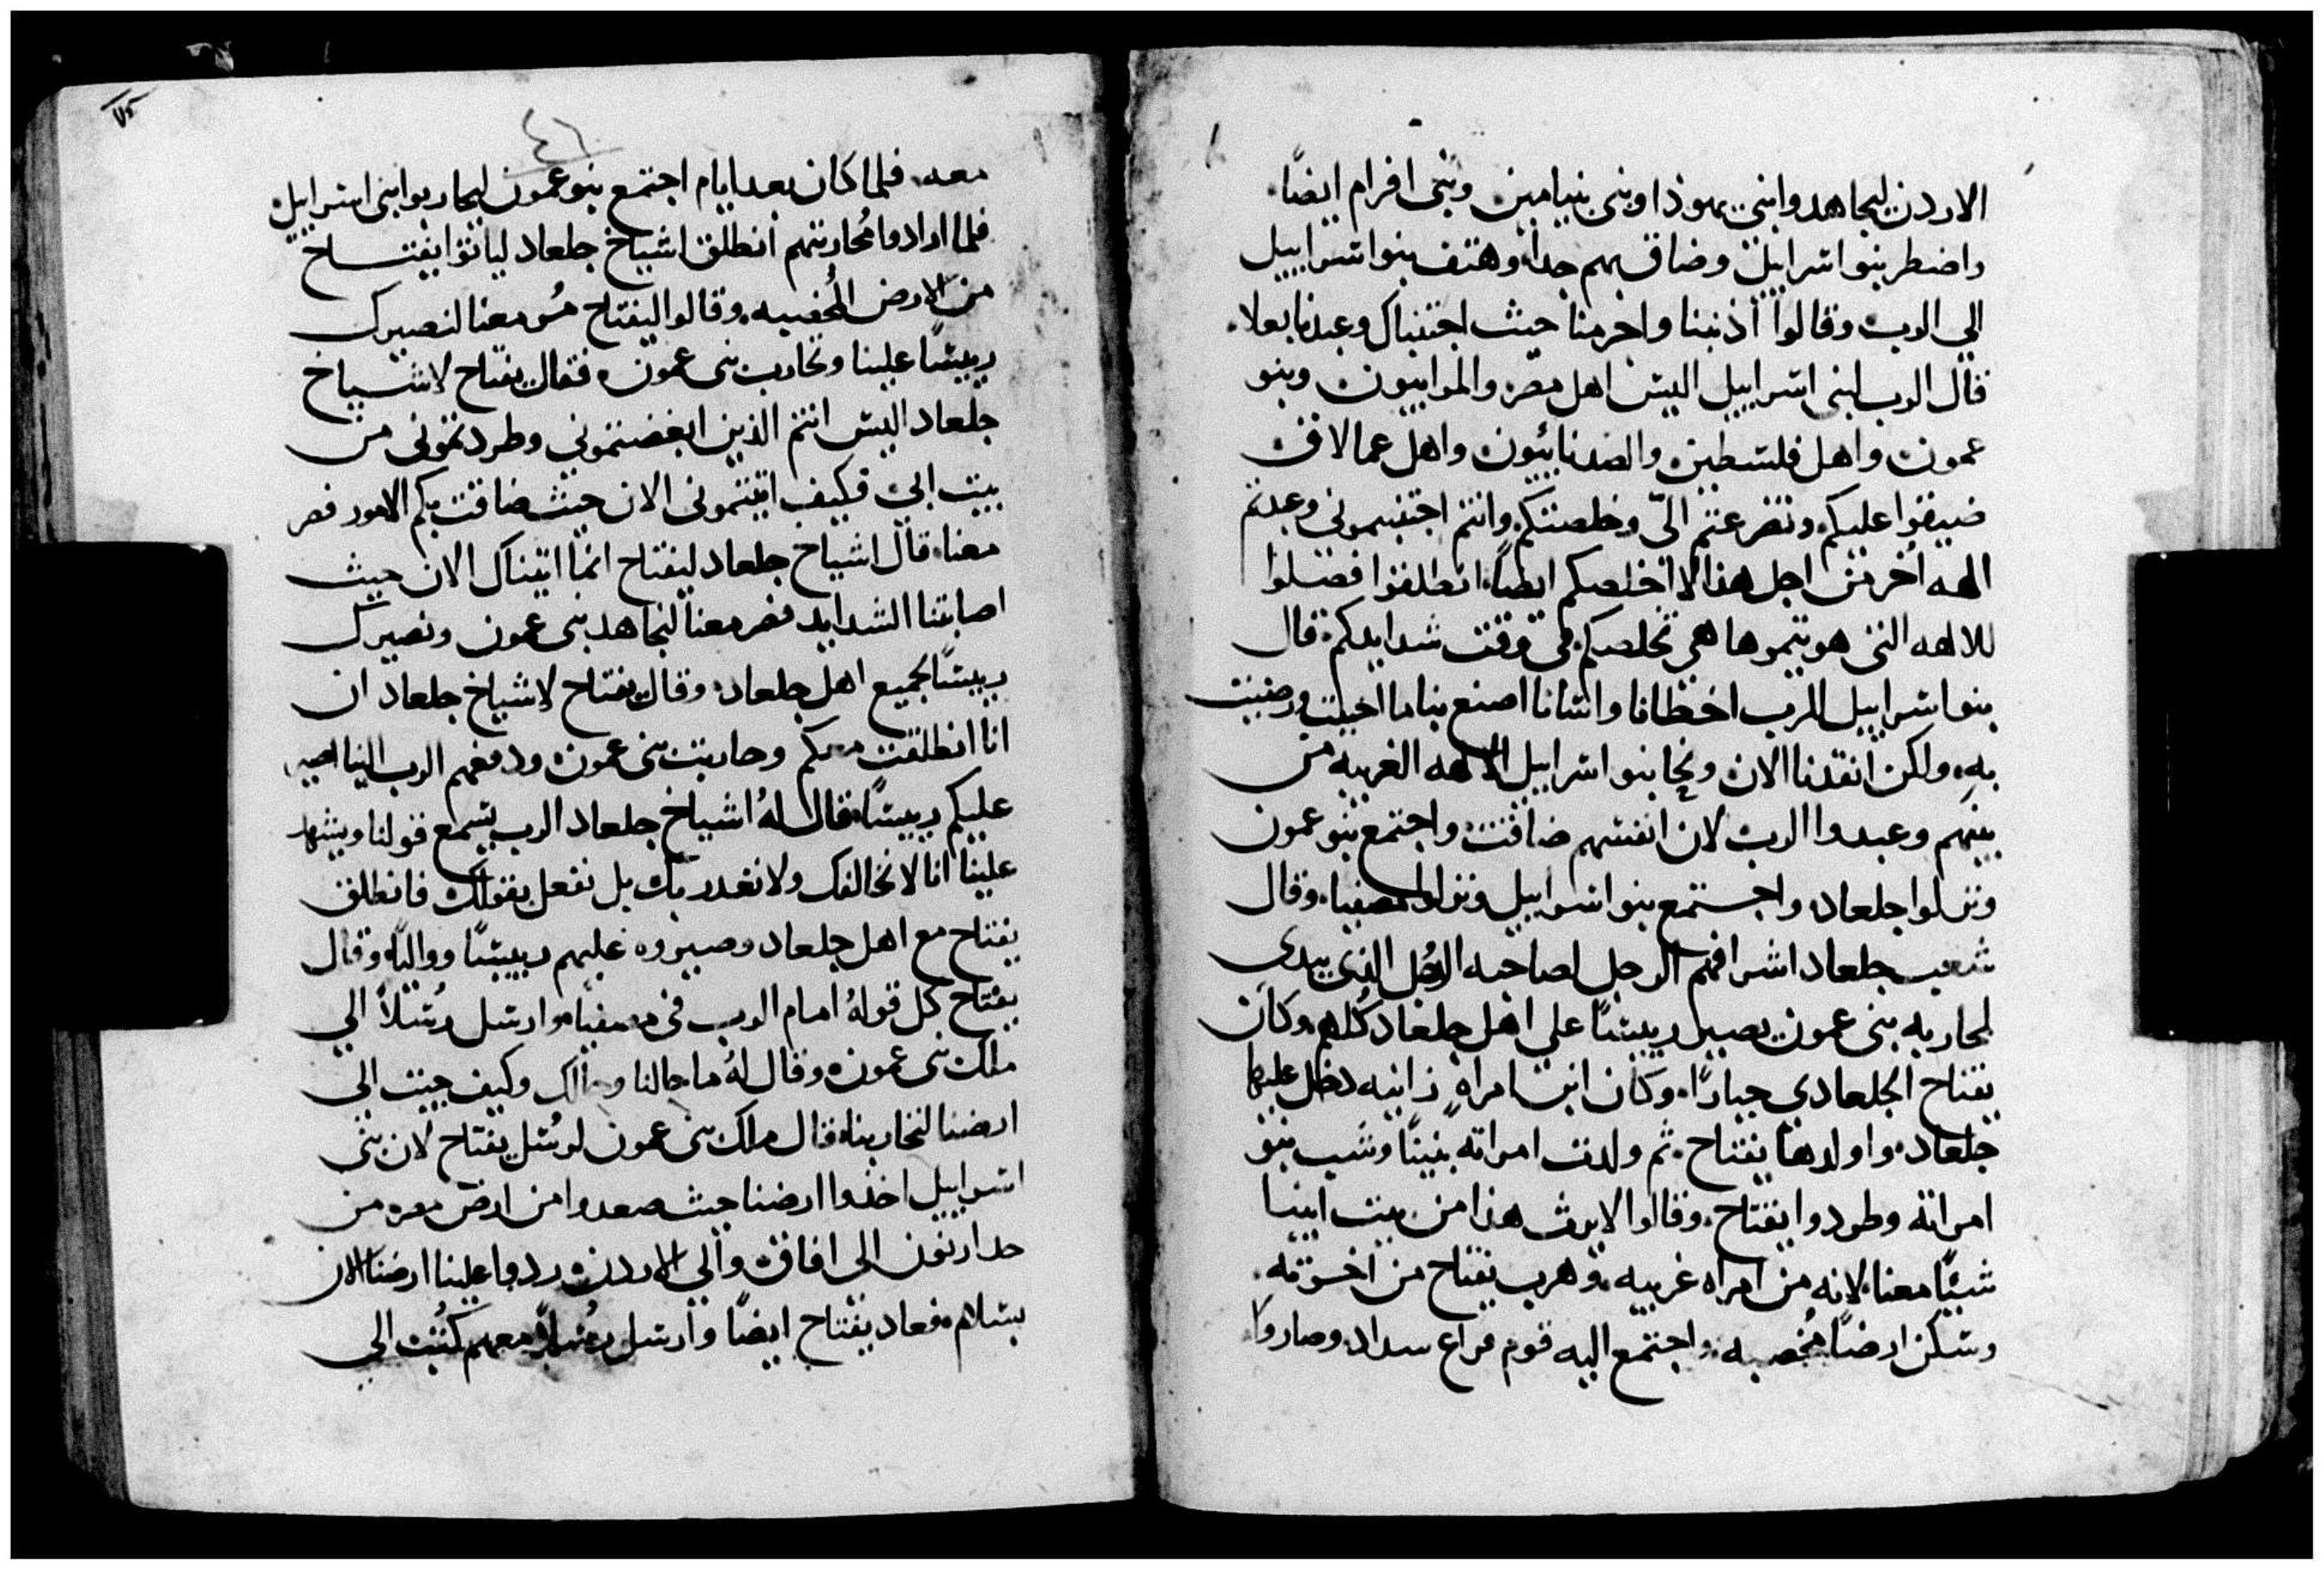 الاردن ليجاهدوا بني يهوذا وبني بنيامين وبني افرام ايضًا.
واضطر بنوا اسراييل وضاق بهم جدًا. وهتف بنوا اسراييل
الي الرب وقالوا اذنبنا واجرمنا حيث اجتنبناك وعبدنا بعلا.
فقال الرب لبني اسراييل اليس اهل مصر والموابيون وبنو
عمون واهل فلسطين والصدنانيون واهل عمالاق
ضيقوا عليكم وتضرعتم اليّ وخلصتكم وانتم اجتنبتموني وعبدتم
الهه اُخر من اجل هذا لا اخلصكم ايضًا. انطلقوا فصلوا
للالهه التي هويتموها هي تخلصكم في وقت شدايدكم. قال
بنوا اسراييل للرب اخطانا واسانا اصنع بنا ما احببت ورضيت
به. ولكن انقدنا الان ونحا بنوا اسراييل الالهه الغريبه من
بينهم وعبدوا الرب لان انفسهم ضاقت. واجتمع بنو عمون
ونزلوا جلعاد. واجتمع بنوا اسراييل ونزلوا لمصفيا. وقال
شعب جلعاد اشرافهم الرجل لصاحبه الرجل الذي يبدي
لمحاربه بني عمون يصير رييسًا علي اهل جلعاد كُلهم. وكان
يفتاح الجلعادي جبارًا. وكان ابن امراهٍ زانيه دخل عليها
جلعاد. واولدها يفتاح. ثم ولدت امراته بنينًا وشب بنو
امراته وطردوا يفتاح. وقالوا لا يرث هذا من بيت ابينا
شيئًا معنا. لانه من امراه غريبه. وهرب يفتاح من اخوته.
وسكن ارضًا مُخصبه. واجتمع اليه قوم فراغ سداد. وصاروا
٤٦
٧٥
معه. فلما كان بعد ايام اجتمع بنو عمون ليحاربوا بني اسراييل
فلما ارادوا مُحاربتهم انطلق اشياخ جلعاد لياتوا بيفتـــاح
من الارض المُخصبه. وقالوا ليفتاح سُر معنا لنصيرك
رييسًا علينا ونحارب بني عمون. فقال يفتاح لاشيـــاخ
جلعاد اليس انتم الذين ابغضتموني وطردتموني من
بيت ابي. فكيف اتيتموني الان حيث ضاقت بكم الامور فصر
معنا. قال اشياخ جلعاد ليفتاح انما اتيناك الان حيث
اصابتنا الشدايد فصر معنا لنجاهد بني عمون ونصيرك
رييسًا لجميع اهل جلعاد. وقال يفتاح لاشياخ جلعاد ان
انا انطلقت معكم وحاربت بني عمون ودفعهم الرب الينا اصير
عليكم رييسًا. فقال لهُ اشياخ جلعاد الرب يسمع قولنا ويشهد
علينا انا لا نخالفك ولا نغدر بك بل نفعل بقولك فانطلق
يفتاح مع اهل جلعاد وصيروه عليهم رييسًا وواليًا. وقال
يفتاح كل قولهُ امام الرب في مصفيا. وارسل رُسلاً الي
ملك بني عمون. وقال لهُ ما حالنا وحالك وكيف جيت الي
ارضنا لتحاربنا. فقال ملك بني عمون لرسُل يفتاح لان بني
اسراييل اخذوا ارضنا حيث صعدوا من ارض مصر من
حد ارنون الي افاق والي الاردن. ردوا علينا ارضنا الان
بسلام. فعاد يفتاح ايضًا وارسل رسُلاً معهم كُتب الي